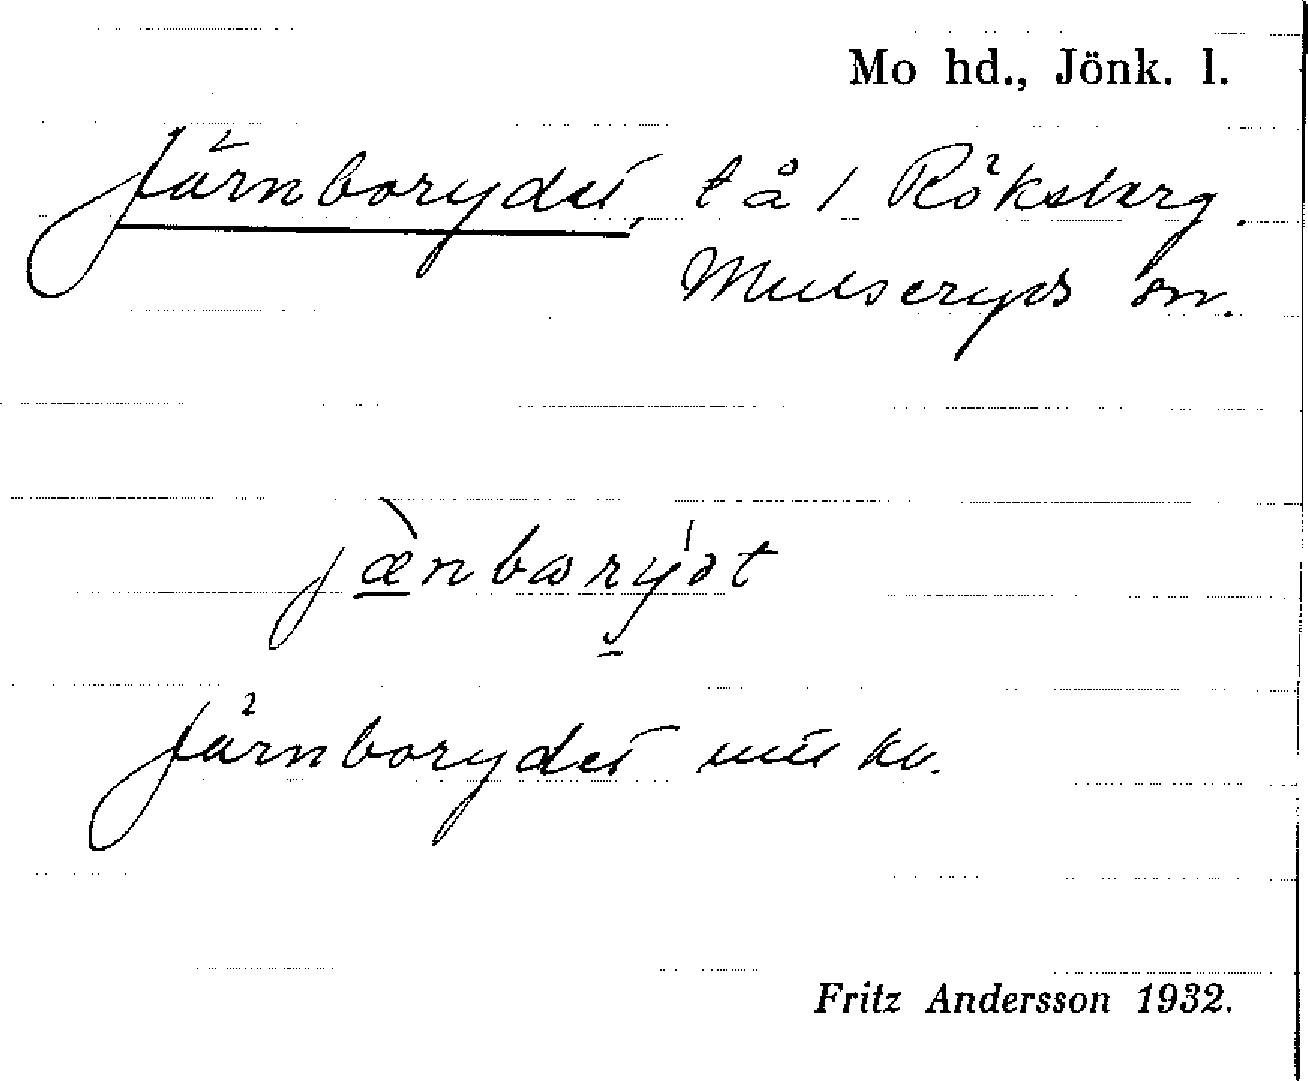 Mo hd., Jönk. l.
Järnborydet, t å / Röksberg.
Mulseryds sn.
jænbωrydt
Järnborydet
Fritz Andersson 1932.